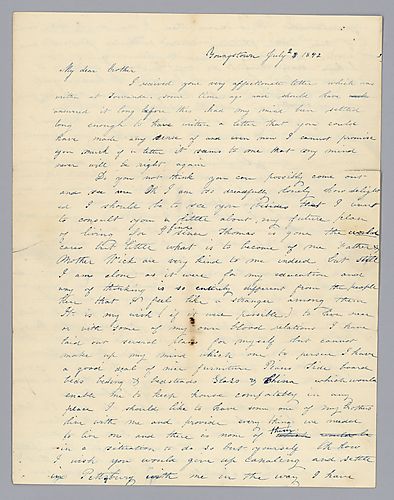 Youngstown July 2 1842
My dear Brother
I received your very affectionate letter which was
written at Towanda some time ago and should have
answered it long before this had my mind been settled
long enough to have written a letter that you could
have made any sense of and even now I cannot promise
you much of a letter it seems to me that my mind
never will be right again
Do you not think you can possibly come out
and see me Oh I am so dreadfully lonely how delight
ed I should be to see you Besides that I want
to consult you a little about my future plan
of living for I find since Thomas is gone the world
cares but little what is to become of me Father &
Mother Wick are very kind to me indeed but still
I am alone as it were for my education and
way of thinking is so entirely different from the people
here that I feel like a stranger among them
It is my wish (if it were possible) to live near
or with some of my own blood relations I have
laid out several plans for myself but cannot
make up my mind which one to pursue I have
a good deal of nice furniture Piano Side board
beds beding & bedsteads Glass & China which would
enable me to keep house comfortably in any
place I should like to have some one of my Brothers
live with me and provide every thing we needed
to live on and there is none of them
in a situation to do so but yourself Oh how
I wish you would give up Canaling and settle
in Pittsburg with me in the way I have